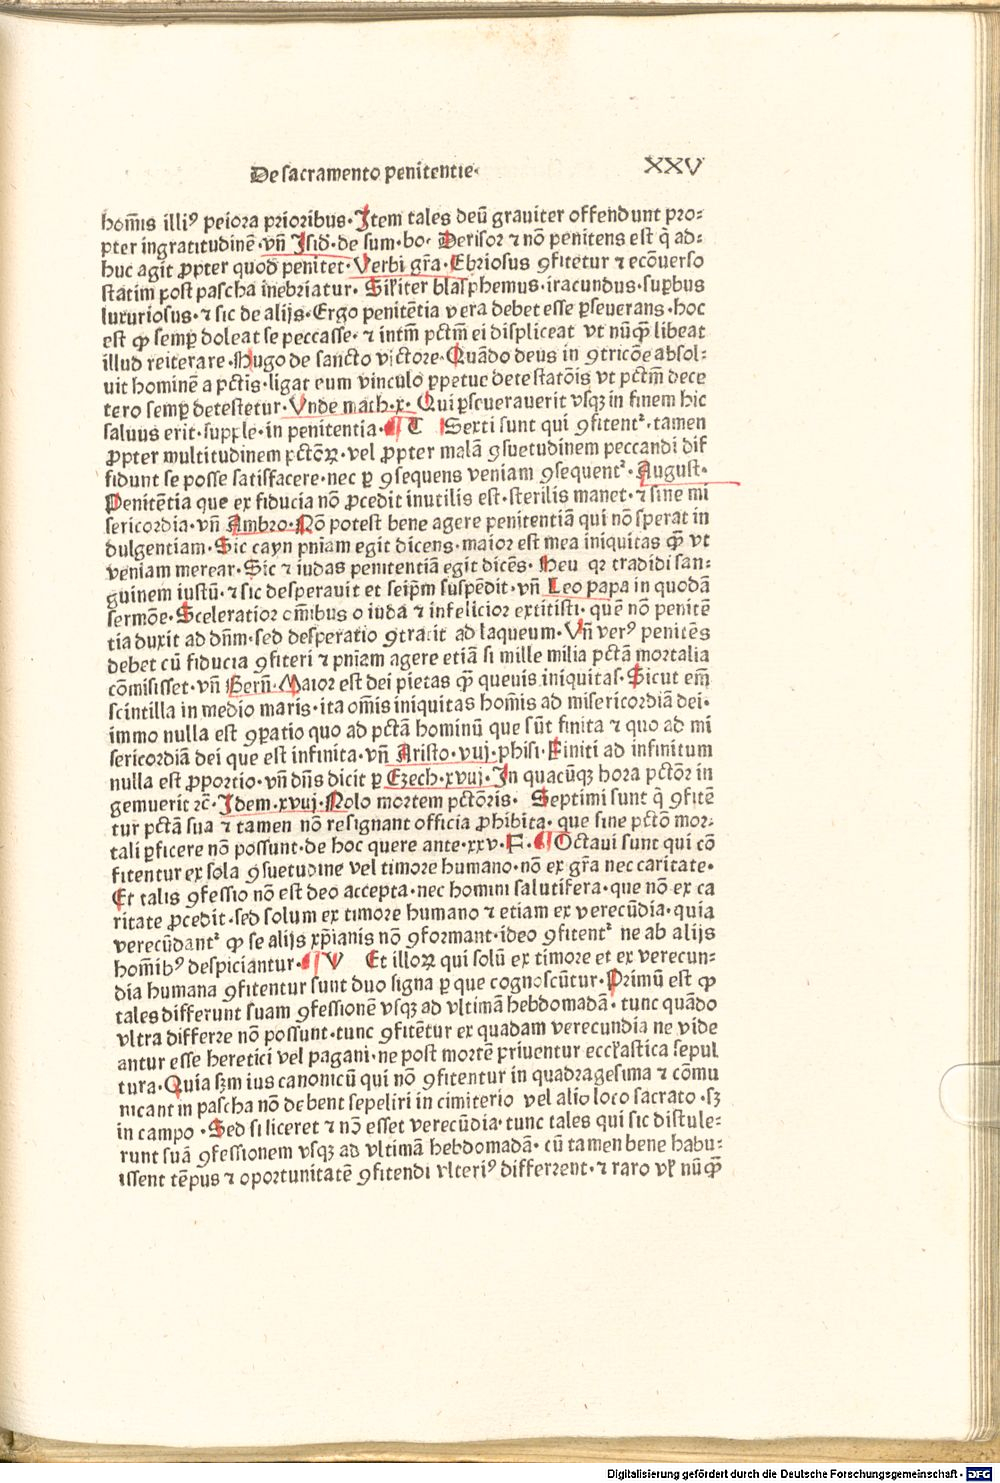 De sacramento penitentie· XXV
hom̄is illiꝰ peiora prioribus· Item tales deū grauiter offendunt pro⸗
pter ingratitudinē· vn̄ Isid· de sum· bo· Derisor ⁊ nō penitens est q̇ ad⸗
huc agit ꝓpter quod penitet· Verbi gr̄a· Ebriosus ꝯfitetur ⁊ ecōuerso
statim post pascha inebriatur· Sil'iter blasphemus· iracundus· suꝑbus
luxuriosus· ⁊ sic de alijs· Ergo penitētia vera debet esse ꝑseuerans· hoc
est ꝙ semꝑ doleat se peccasse· ⁊ intm̄ pctm̄ ei displiceat vt nūꝙ̄ libeat
illud reiterare· Hugo de sancto victore· Quādo deus in ꝯtricōe absol⸗
uit hominē a pctīs· ligat eum vinculo ꝑpetue detestatōis vt pctm̄ dece
tero semꝑ detestetur· Vnde math· x· Qui ꝑseuerauerit vsqꝫ in finem hic
saluus erit· supple· in penitentia· ¶ T Sexti sunt qui ꝯfitent᷑· tamen
ꝓpter multitudinem pctōꝝ· vel ꝓpter malā ꝯsuetudinem peccandi dif
fidunt se posse satisfacere· nec ꝑ ꝯsequens veniam ꝯsequent᷑· August·
Penitētia que ex fiducia nō ꝓcedit inutilis est· sterilis manet· ⁊ sine mi
sericordia· vn̄ Ambro· Nō potest bene agere penitentiā qui nō sperat in
dulgentiam· Sic cayn pn̄iam egit dicens· maior est mea iniquitas ꝙ̄ vt
veniam merear· Sic ⁊ iudas penitentiā egit dicēs· Heu qꝛ tradidi san⸗
guinem iustū· ⁊ sic desperauit et seip̄m suspēdit· vn̄ Leo papa in quodā
sermōe· Sceleratior om̄ibus o iuda ⁊ infelicior extitisti· quē nō penitē
tia duxit ad dn̄m· sed desperatio ꝯtraxit ad laqueum· Vn̄ verꝰ penitēs
debet cū fiducia ꝯfiteri ⁊ pn̄iam agere etiā si mille milia pctā mortalia
cōmisisset· vn̄ Bern̄· Maior est dei pietas ꝙ̄ queuis iniquitas· Sicut em̄
scintilla in medio maris· ita om̄is iniquitas hom̄is ad misericordiā dei·
immo nulla est ꝯꝑatio quo ad pctā hominū que sūt finita ⁊ quo ad mi
sericordiā dei que est infinita· vn̄ Aristo· viij· phisi· Finiti ad infinitum
nulla est ꝓportio· vn̄ dn̄s dicit ꝑ Ezech· xviij· In quacūqꝫ hora pctōr in
gemuerit ⁊c̄· Idem· xviij· Nolo mortem pctōris· Septimi sunt q̇ ꝯfitē
tur pctā sua ⁊ tamen nō resignant officia ꝓhibita· que sine pctō mor⸗
tali ꝑficere nō possunt· de hoc quere ante· xxv· F· ¶ Octaui sunt qui cō
fitentur ex sola ꝯsuetudine vel timore humano· nō ex gr̄a nec caritate·
Et talis ꝯfessio nō est deo accepta· nec homini salutifera· que nō ex ca
ritate ꝓcedit· sed solum ex timore humano ⁊ etiam ex verecūdia· quia
verecūdant᷑ ꝙ se alijs xp̄ianis nō ꝯformant· ideo ꝯfitent᷑ ne ab alijs
hom̄ibꝰ despiciantur· ¶ V Et illoꝝ qui solū ex timore et ex verecun⸗
dia humana ꝯfitentur sunt duo signa ꝑ que cognoscūtur· Primū est ꝙ
tales differunt suam ꝯfessionē vsqꝫ ad vltimā hebdomadā· tunc quādo
vltra differre nō possunt· tunc ꝯfitētur ex quadam verecundia ne vide
antur esse heretici vel pagani· ne post mortē priuentur eccl'astica sepul
tura· Quia sꝫm ius canonicū qui nō ꝯfitentur in quadragesima ⁊ cōmu
nicant in pascha nō debent sepeliri in cimiterio vel alio loco sacrato· sꝫ
in campo· Sed si liceret ⁊ nō esset verecūdia· tunc tales qui sic distule⸗
runt suā ꝯfessionem vsqꝫ ad vltimā hebdomadā· cū tamen bene habu⸗
issent tēpus ⁊ oportunitatē ꝯfitendi vlteriꝰ differrent· ⁊ raro vl' nūꝙ̄
Digitalisierung gefördert durch die Deutsche Forschungsgemeinschaft - DFG